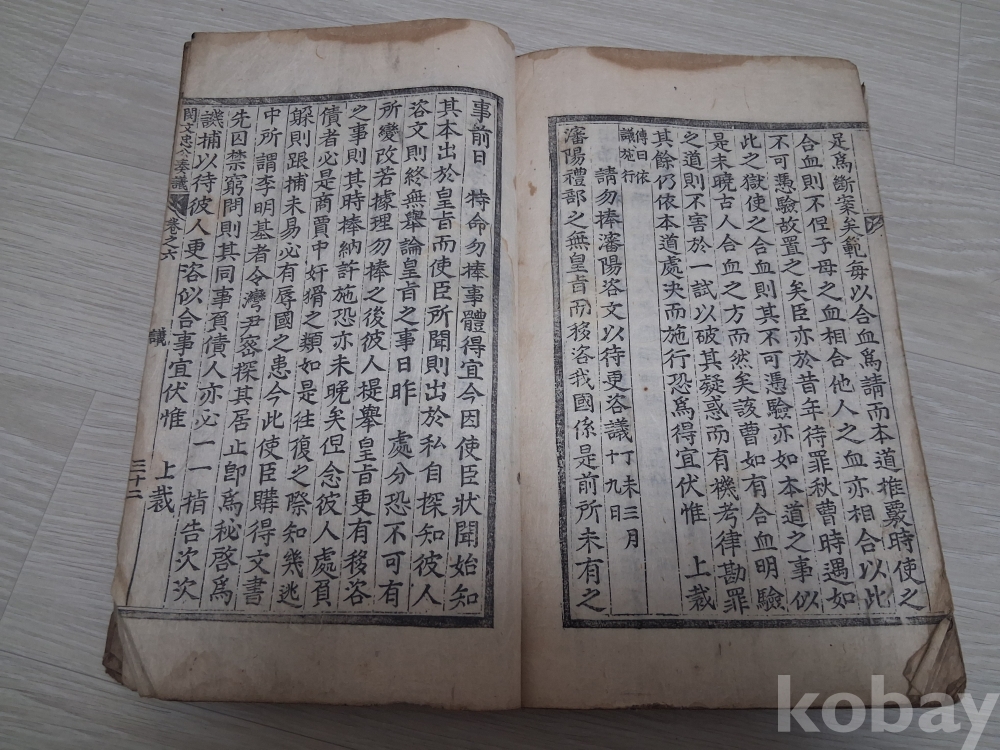 是爲斷案矣範每以合血爲請而本道推覈時使之
合血則不但子母之血相合他人之血亦相合以此
不可憑驗故置之矣臣亦於昔年待罪秋曹時遇如
此之獄使之合血則其不可憑驗亦如本道之事似
是未曉古人合血之方而然矣該曹如有合血明驗
之道則不害於一試以破其疑惑而有機考律勘罪
其餘仍依本道處决而施行恐爲得宜伏惟 上裁
傳曰依
議施行
請勿捧瀋陽咨文以待更咨議 丁未三月
十九日
瀋陽禮部之無皇旨而移咨我國係是前所未有之
事前日 特命勿捧事體得宜今因使臣狀聞始知
其本出於皇旨而使臣所聞則出於私自探知彼人
咨文則終無擧論皇旨之事日昨 處分恐不可有
所變改若據理勿捧之後彼人提擧皇旨更有移咨
之事則其時捧納許施恐亦未晚矣但念彼人處負
債者必是商賈中奸猾之類如是往復之際知幾逃
躱則跟捕未易必有辱國之患今此使臣購得文書
中所謂李明基者令灣尹密探其居止卽爲秘啓爲
先囚禁窮問則其同事負債人亦必一一指告次次
譏捕以待彼人更咨似合事宜伏惟 上裁
閔文忠公奏議 卷之六 議 三十二
kobay